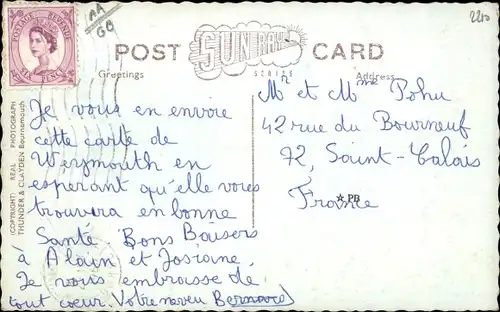 POSTAGE REVENUE
SIX PENCE
AA
GB
2210
POST SUNRAY CARD
SERIES
Greetings
Address
COPYRIGHT REAL PHOTOGRAPH
THUNDER & CLAYDEN Bournemouth
Je vous en envoie
cette carte de
Weymouth en
esperant qu'elle vous
trouvera en bonne
Santé. Bons Baisers
à Alain et Josiane.
Je vous embrasse de
tout coeur. Votre neveu Bernard
Mr et Mme Pohu
42 rue du Bourneuf
72, Saint-Calais
France
★PB